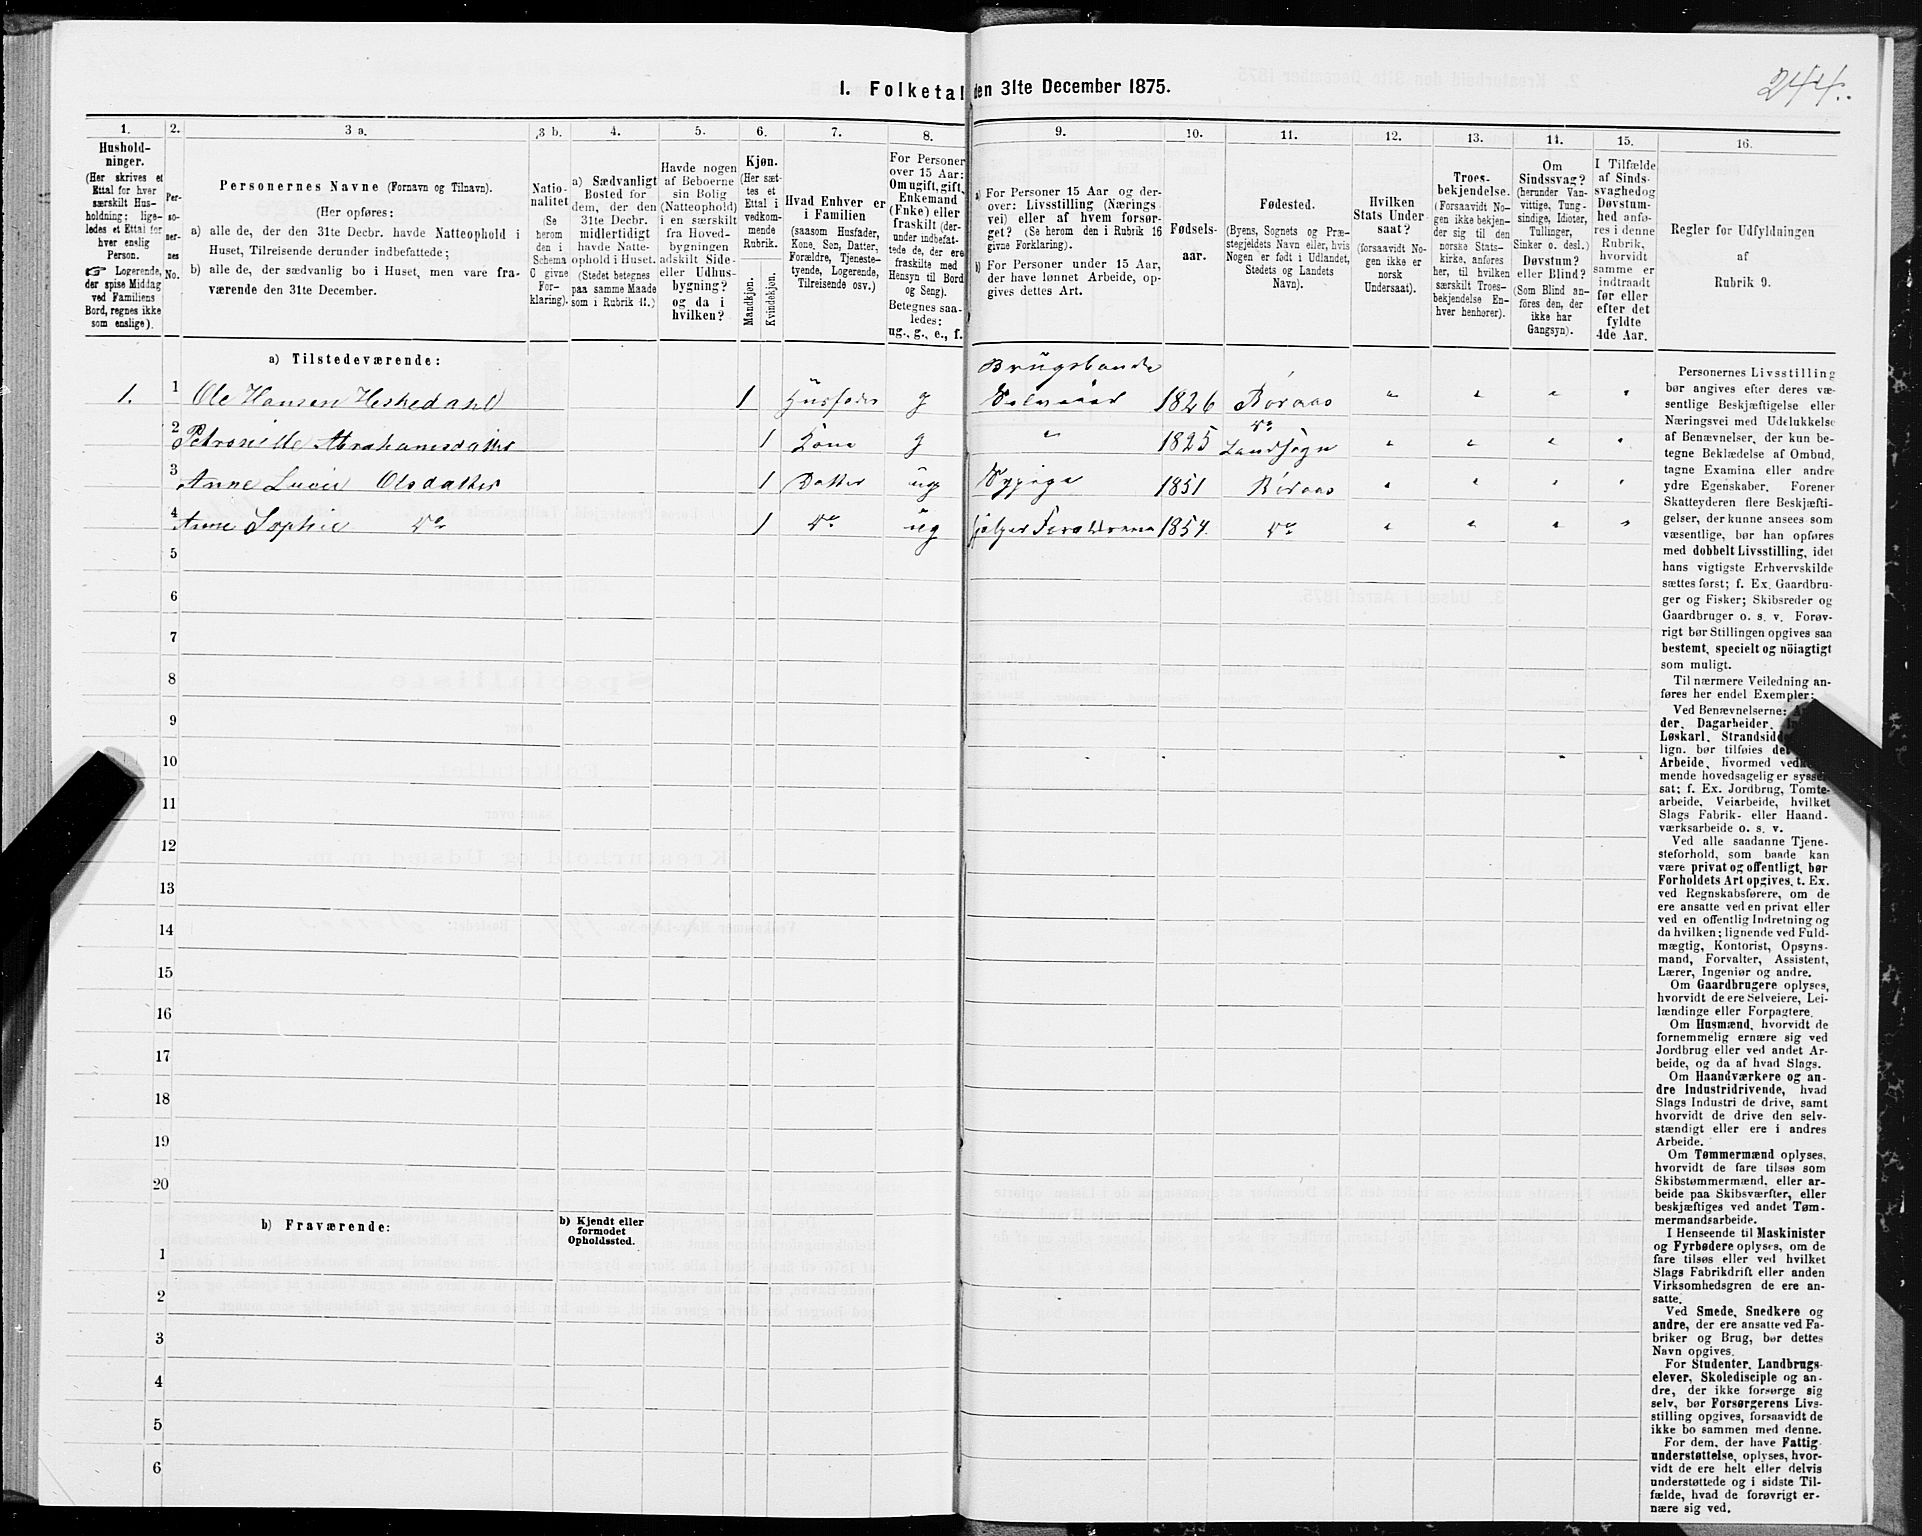 1. Folketal den 31te December 1875.
244.
1.
2.
3 a.
3 b.
4.
5.
6.
7.
8.
9.
10.
11.
12.
13.
14.
15.
16.
Hushold-
ninger.
(Her skrives et
Ettal for hver
særskilt Hus-
holdning; lige-
ledes et Ettal for
hver enslig
Person.
☞ Logerende,
der spise Middag
ved Familiens
Bord, regnes ikke
som enslige).
Per-
so-
ner-
nes
No.
Personernes Navne (Fornavn og Tilnavn).
(Her opføres:
a) alle de, der den 31te Decbr. havde Natteophold i
Huset, Tilreisende derunder indbefattede;
b) alle de, der sædvanlig bo i Huset, men vare fra-
værende den 31te December.
Natio-
nalitet
(Se
herom
den i
Schema
C givne
For-
klaring).
a) Sædvanligt
Bosted for
dem, der den
31te Decbr.
midlertidigt
havde Natte-
ophold i Huset.
(Stedet betegnes
paa samme Maade
som i Rubrik 11.)
Havde nogen
af Beboerne
sin Bolig
(Natteophold)
i en særskilt
fra Hoved-
bygningen
adskilt Side-
eller Udhus-
bygning?
og da i
hvilken?
Kjøn.
(Her sæt-
tes et
Ettal i
vedkom-
mende
Rubrik.
Mandkjøn.
Kvindekjøn.
Hvad Enhver er
i Familien
(saasom Husfader,
Kone, Søn, Datter,
Forældre, Tjeneste-
tyende, Logerende,
Tilreisende osv.)
For Personer
over 15 Aar:
Om ugift, gift,
Enkemand
(Enke) eller
fraskilt (der-
under indbefat-
tede de, der ere
fraskilte med
Hensyn til Bord
og Seng).
Betegnes saa-
ledes:
ug., g., e., f.
a) For Personer 15 Aar og der-
over: Livsstilling (Nærings-
vei) eller af hvem forsør-
get? (Se herom den i Rubrik 16
givne Forklaring).
b) For Personer under 15 Aar,
der have lønnet Arbeide, op-
gives dettes Art.
Fødsels-
aar.
Fødested.
(Byens, Sognets og Præ-
stegjeldets Navn eller, hvis
Nogen er født i Udlandet,
Stedets og Landets
Navn).
Hvilken
Stats Under-
saat?
(forsaavidt No-
gen ikke er
norsk
Undersaat).
Troes-
bekjendelse.
(Forsaavidt No-
gen ikke bekjen-
der sig til den
norske Stats-
kirke, anføres
her, til hvilken
særskilt Troes-
bekjendelse En-
hver henhører).
Om
Sindssvag?
(herunder Van-
vittige, Tung-
sindige, Idioter,
Tullinger,
Sinker o. desl.)
Døvstum?
eller Blind?
(Som Blind an-
føres den, der
ikke har
Gangsyn).
I Tilfælde
af Sinds-
svaghed og
Døvstum-
hed anfø-
res i denne
Rubrik,
hvorvidt
samme er
indtraadt
før eller
efter det
fyldte
4de Aar.
Regler for Udfyldningen
af
Rubrik 9.
a) Tilstedeværende:
Brugsbonde
1. 1 Ole Hansen Heskedahl 1 Husfader g Selveier 1826 Boraas " " " "
2 Petronille Abrahamsdatter 1 Kone g " 1825 Do Landsogn " " " "
3 Anne Lucie Olsdatter 1 Datter ug Sypige 1851 Boraas " " " "
4 Anne Sophie Do 1 Do ug hjælper Forældrene 1854. Do " " " "
5
6
7
8
9
10
11
12
13
14
15
16
17
18
19
20
b) Fraværende:
b) Kjendt eller
formodet
Opholdssted.
1
2
3
4
5
6
Personernes Livsstilling
bør angives efter deres væ-
sentlige Beskjæftigelse eller
Næringsvei med Udelukkelse
af Benævnelser, der kun be-
tegne Beklædelse af Ombud,
tagne Examina eller andre
ydre Egenskaber. Forener
Skatteyderen flere Beskjæfti-
gelser, der kunne ansees som
væsentlige, bør han opføres
med dobbelt Livsstilling, idet
hans vigtigste Erhvervskilde
sættes først; f. Ex. Gaardbru-
ger og Fisker; Skibsreder og
Gaardbruger o. s. v. Forøv-
rigt bør Stillingen opgives saa
bestemt, specielt og nöiagtigt
som muligt.
Til nærmere Veiledning an-
føres her endel Exempler:
Ved Benævnelserne:
der, Dagarbeider,
Løskarl, Strandsidd
lign. bør tilføies
Arbeide, hvormed
mende hovedsagelig er syssel-
sat; f. Ex. Jordbrug, Tomte-
arbeide, Veiarbeide, hvilket
Slags Fabrik- eller Haand-
værksarbeide o. s. v.
Ved alle saadanne Tjene-
steforhold, som baade kan
være privat og offentligt, bør
Forholdets Art opgives, t. Ex.
ved Regnskabsførere, om de
ere ansatte ved en privat eller
ved en offentlig Indretning og
da hvilken; lignende ved Fuld-
mægtig, Kontorist, Opsyns-
mand, Forvalter, Assistent,
Lærer, Ingeniør og andre.
Om Gaardbrugere oplyses,
hvorvidt de ere Selveiere, Lei-
lændinge eller Forpagtere.
Om Husmænd, hvorvidt de
fornemmelig ernære sig ved
Jordbrug eller ved andet Ar-
beide, og da af hvad Slags.
Om Haandværkere og an-
dre Industridrivende, hvad
Slags Industri de drive, samt
hvorvidt de drive den selv-
stændigt eller ere i andres
Arbeide.
Om Tømmermænd oplyses,
hvorvidt de fare tilsøs som
Skibstømmermænd, eller ar-
beide paa Skibsværfter, eller
beskjæftiges ved andet Tøm-
mermandsarbeide.
I Henseende til Maskinister
og Fyrbødere oplyses, om de
fare tilsøs eller ved hvilket
Slags Fabrikdrift eller anden
Virksomhedsgren de ere an-
satte.
Ved Smede, Snedkere og
andre, der ere ansatte ved Fa-
briker og Brug, bør dettes
Navn opgives.
For Studenter, Landbrugs-
elever, Skoledisciple og an-
dre, der ikke forsørge sig
selv, bør Forsørgerens Livs-
stilling opgives, forsaavidt de
ikke bo sammen med denne.
For dem, der have Fattig-
understøttelse, oplyses, hvor-
vidt de ere helt eller delvis
understøttede og i sidste Til-
fælde, hvad de forøvrigt er-
nære sig ved.